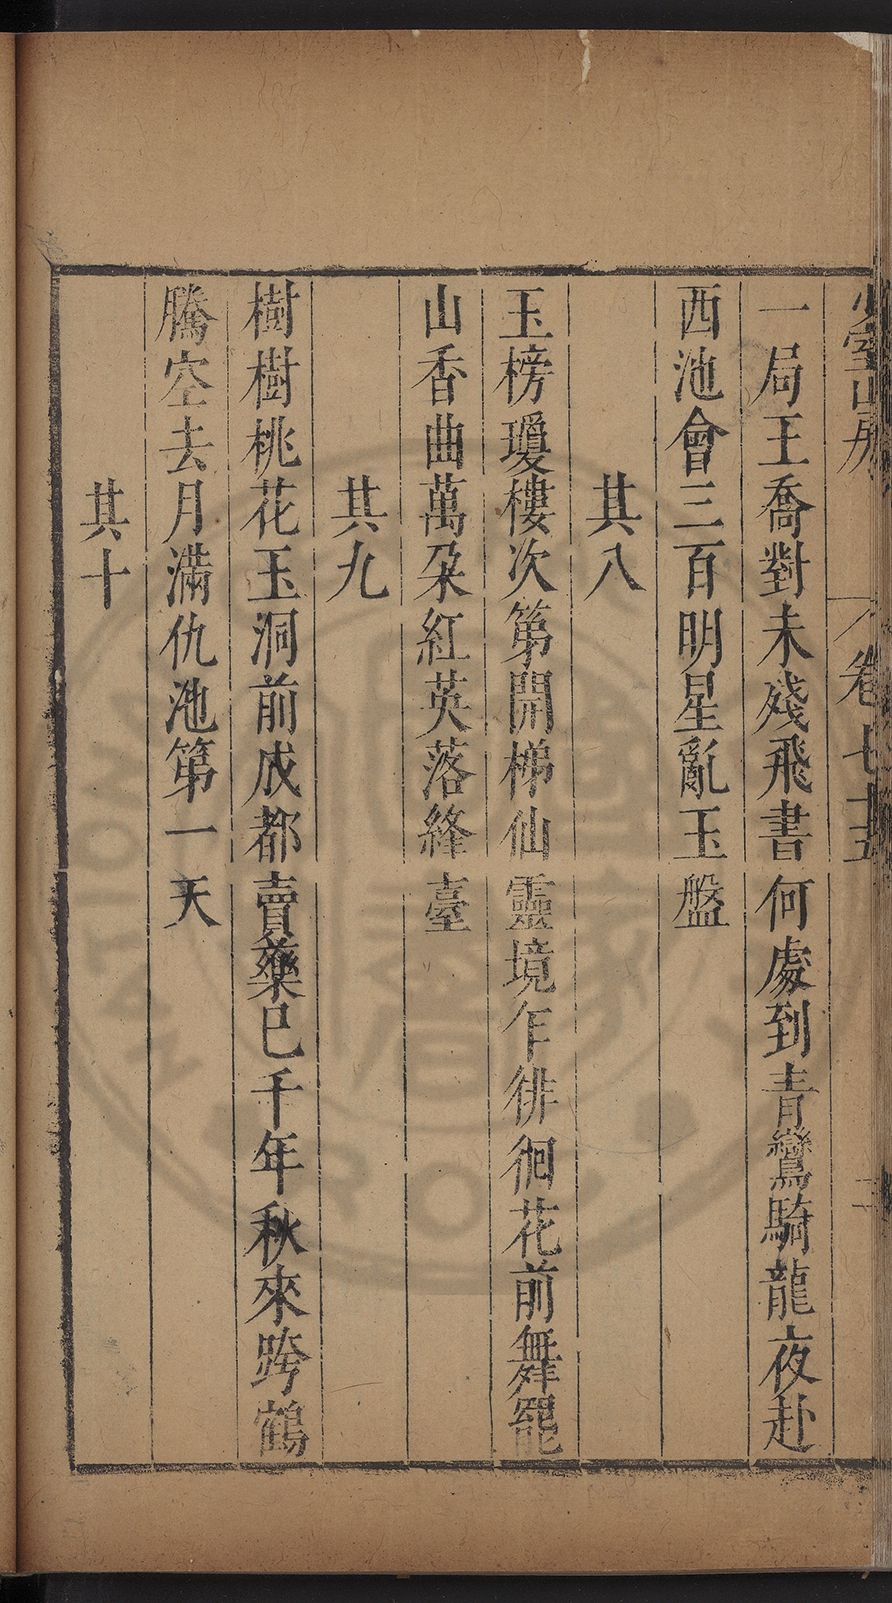 少室山房 卷七十五
一局王喬對未殘飛書何處到青鸞騎龍夜赴
西池會三百明星亂玉盤
其八
玉榜瓊樓次第開梯仙靈境乍徘徊花前舞罷
山香曲萬朶紅英落絳臺
其九
樹樹桃花玉洞前成都賣藥巳千年秋來跨鶴
騰空去月滿仇池第一天
其十